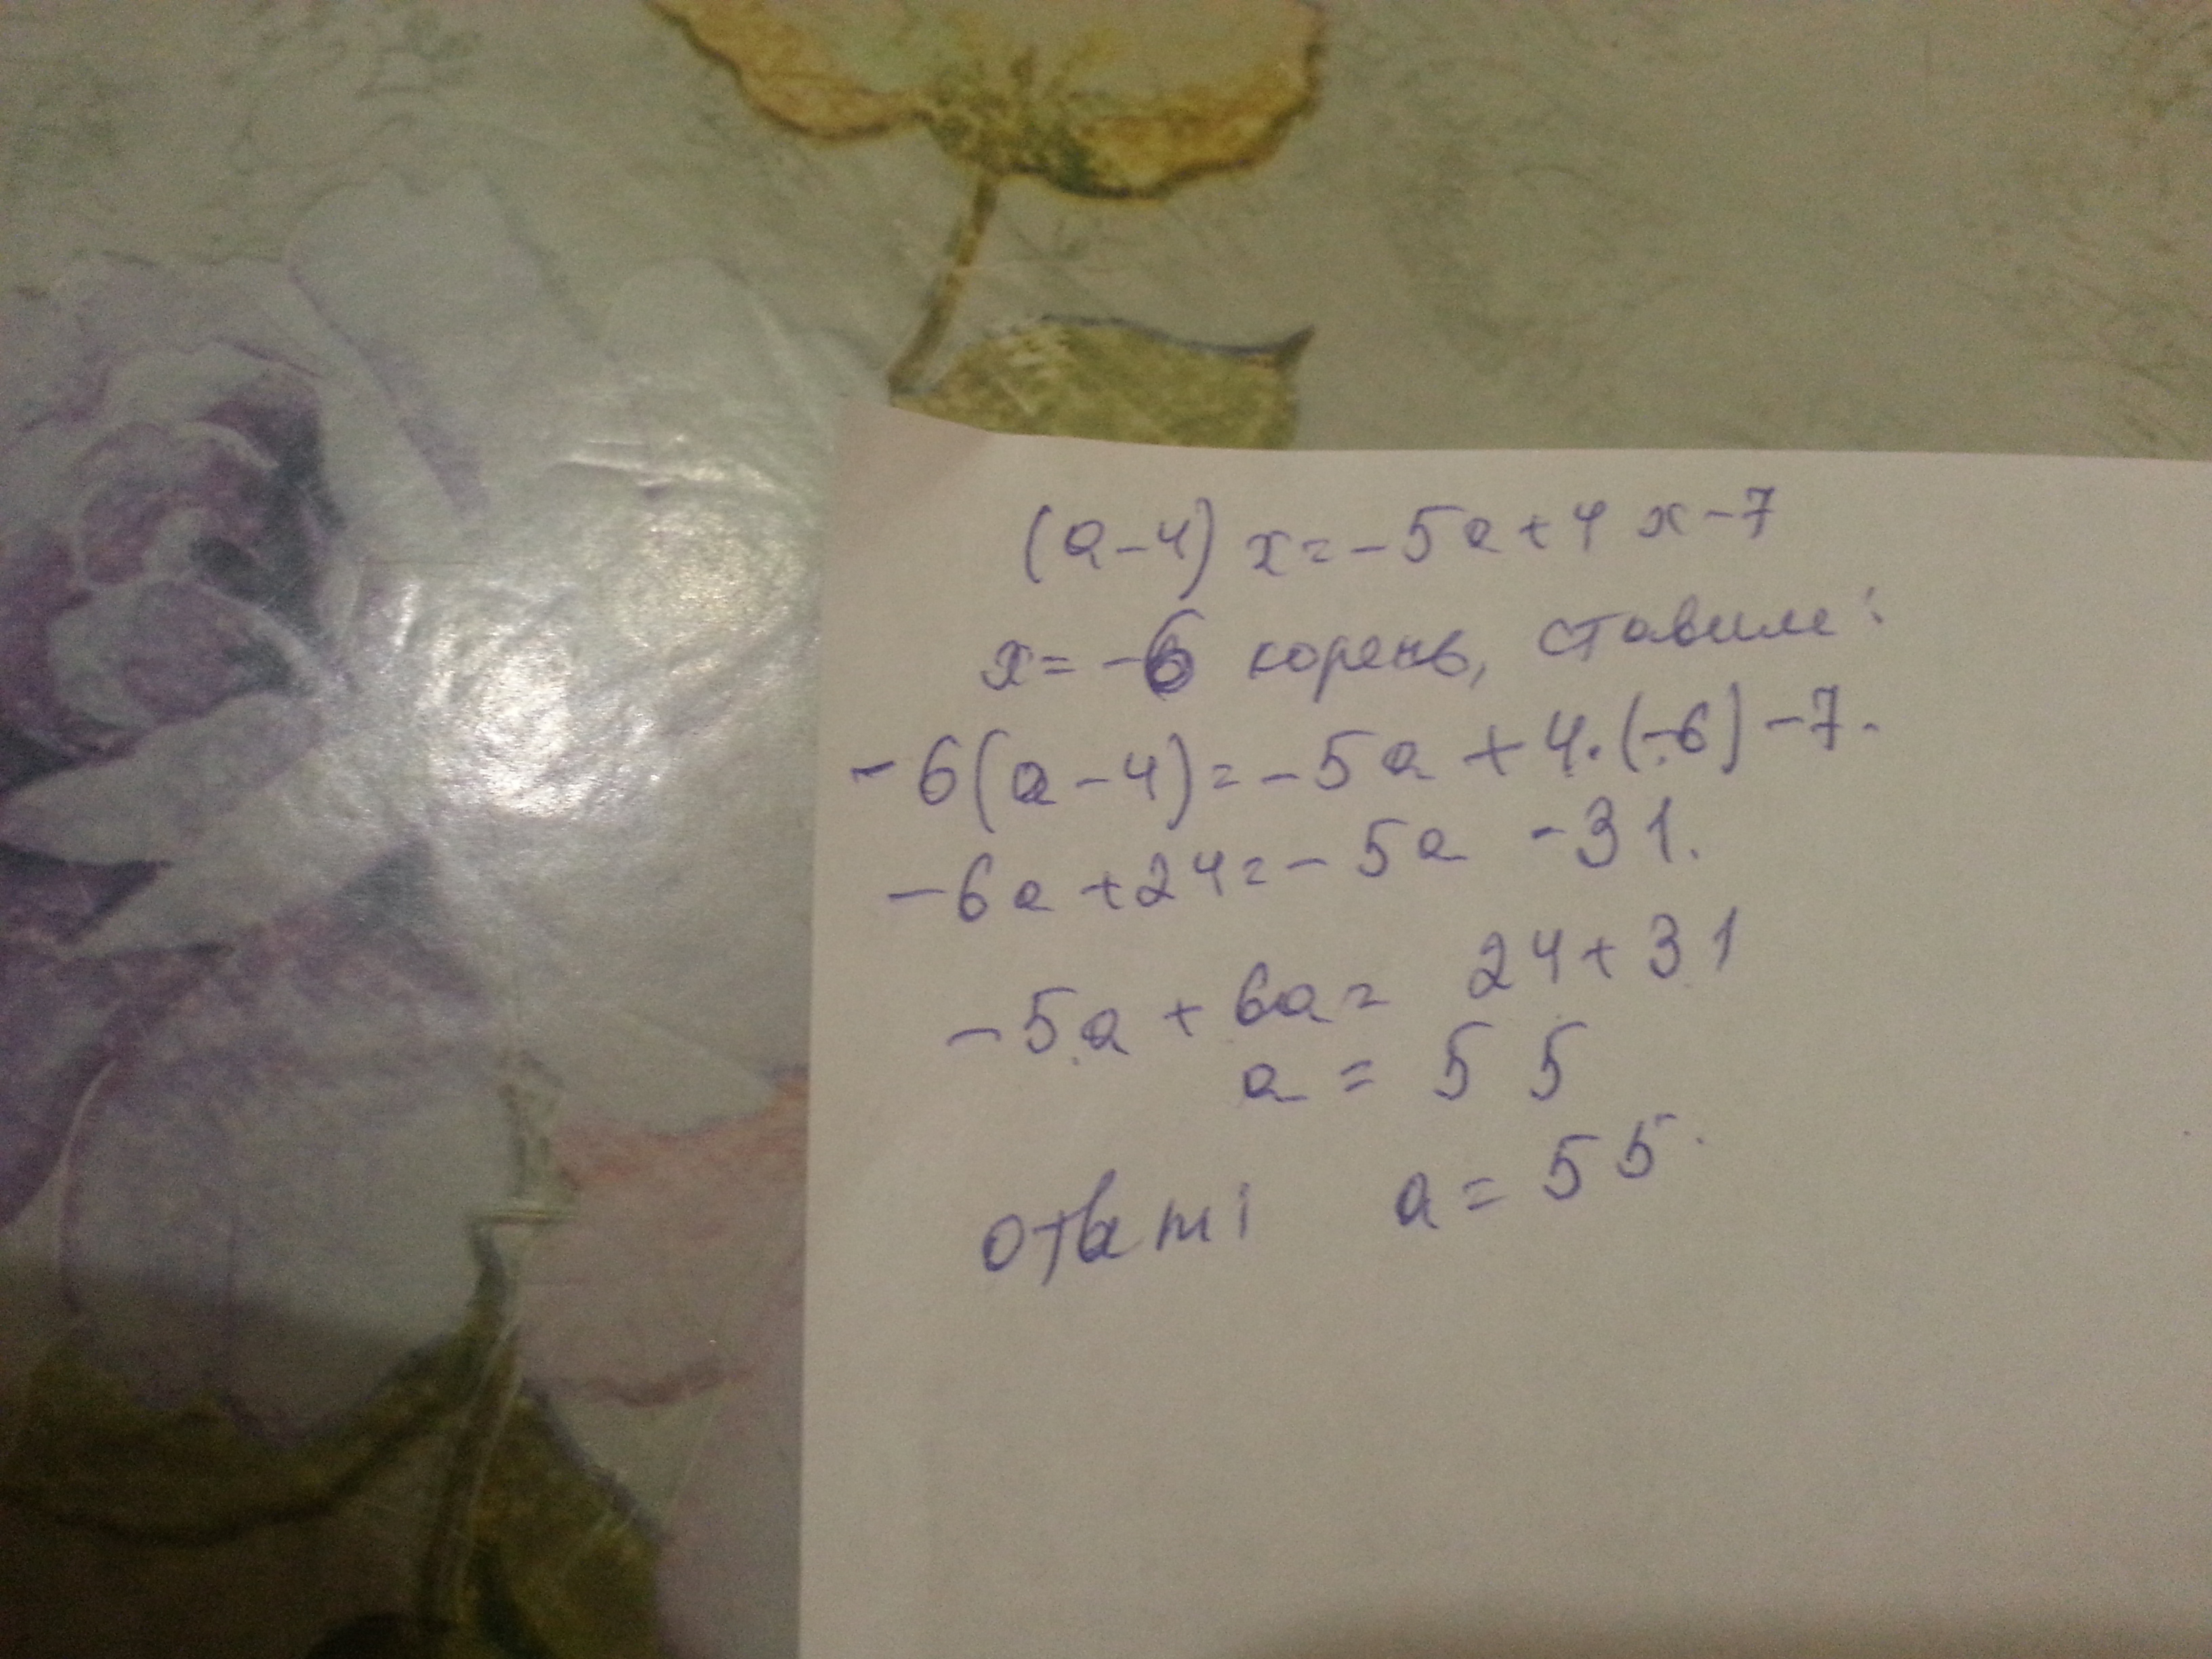 (a-4) x=-5a+4x-7
x=-6 корень, ставим:
-6(a-4)=-5a+4·(-6)-7.
-6a+24=-5a -31.
-5a+6a= 24+31
a = 55
ответ: a=55.